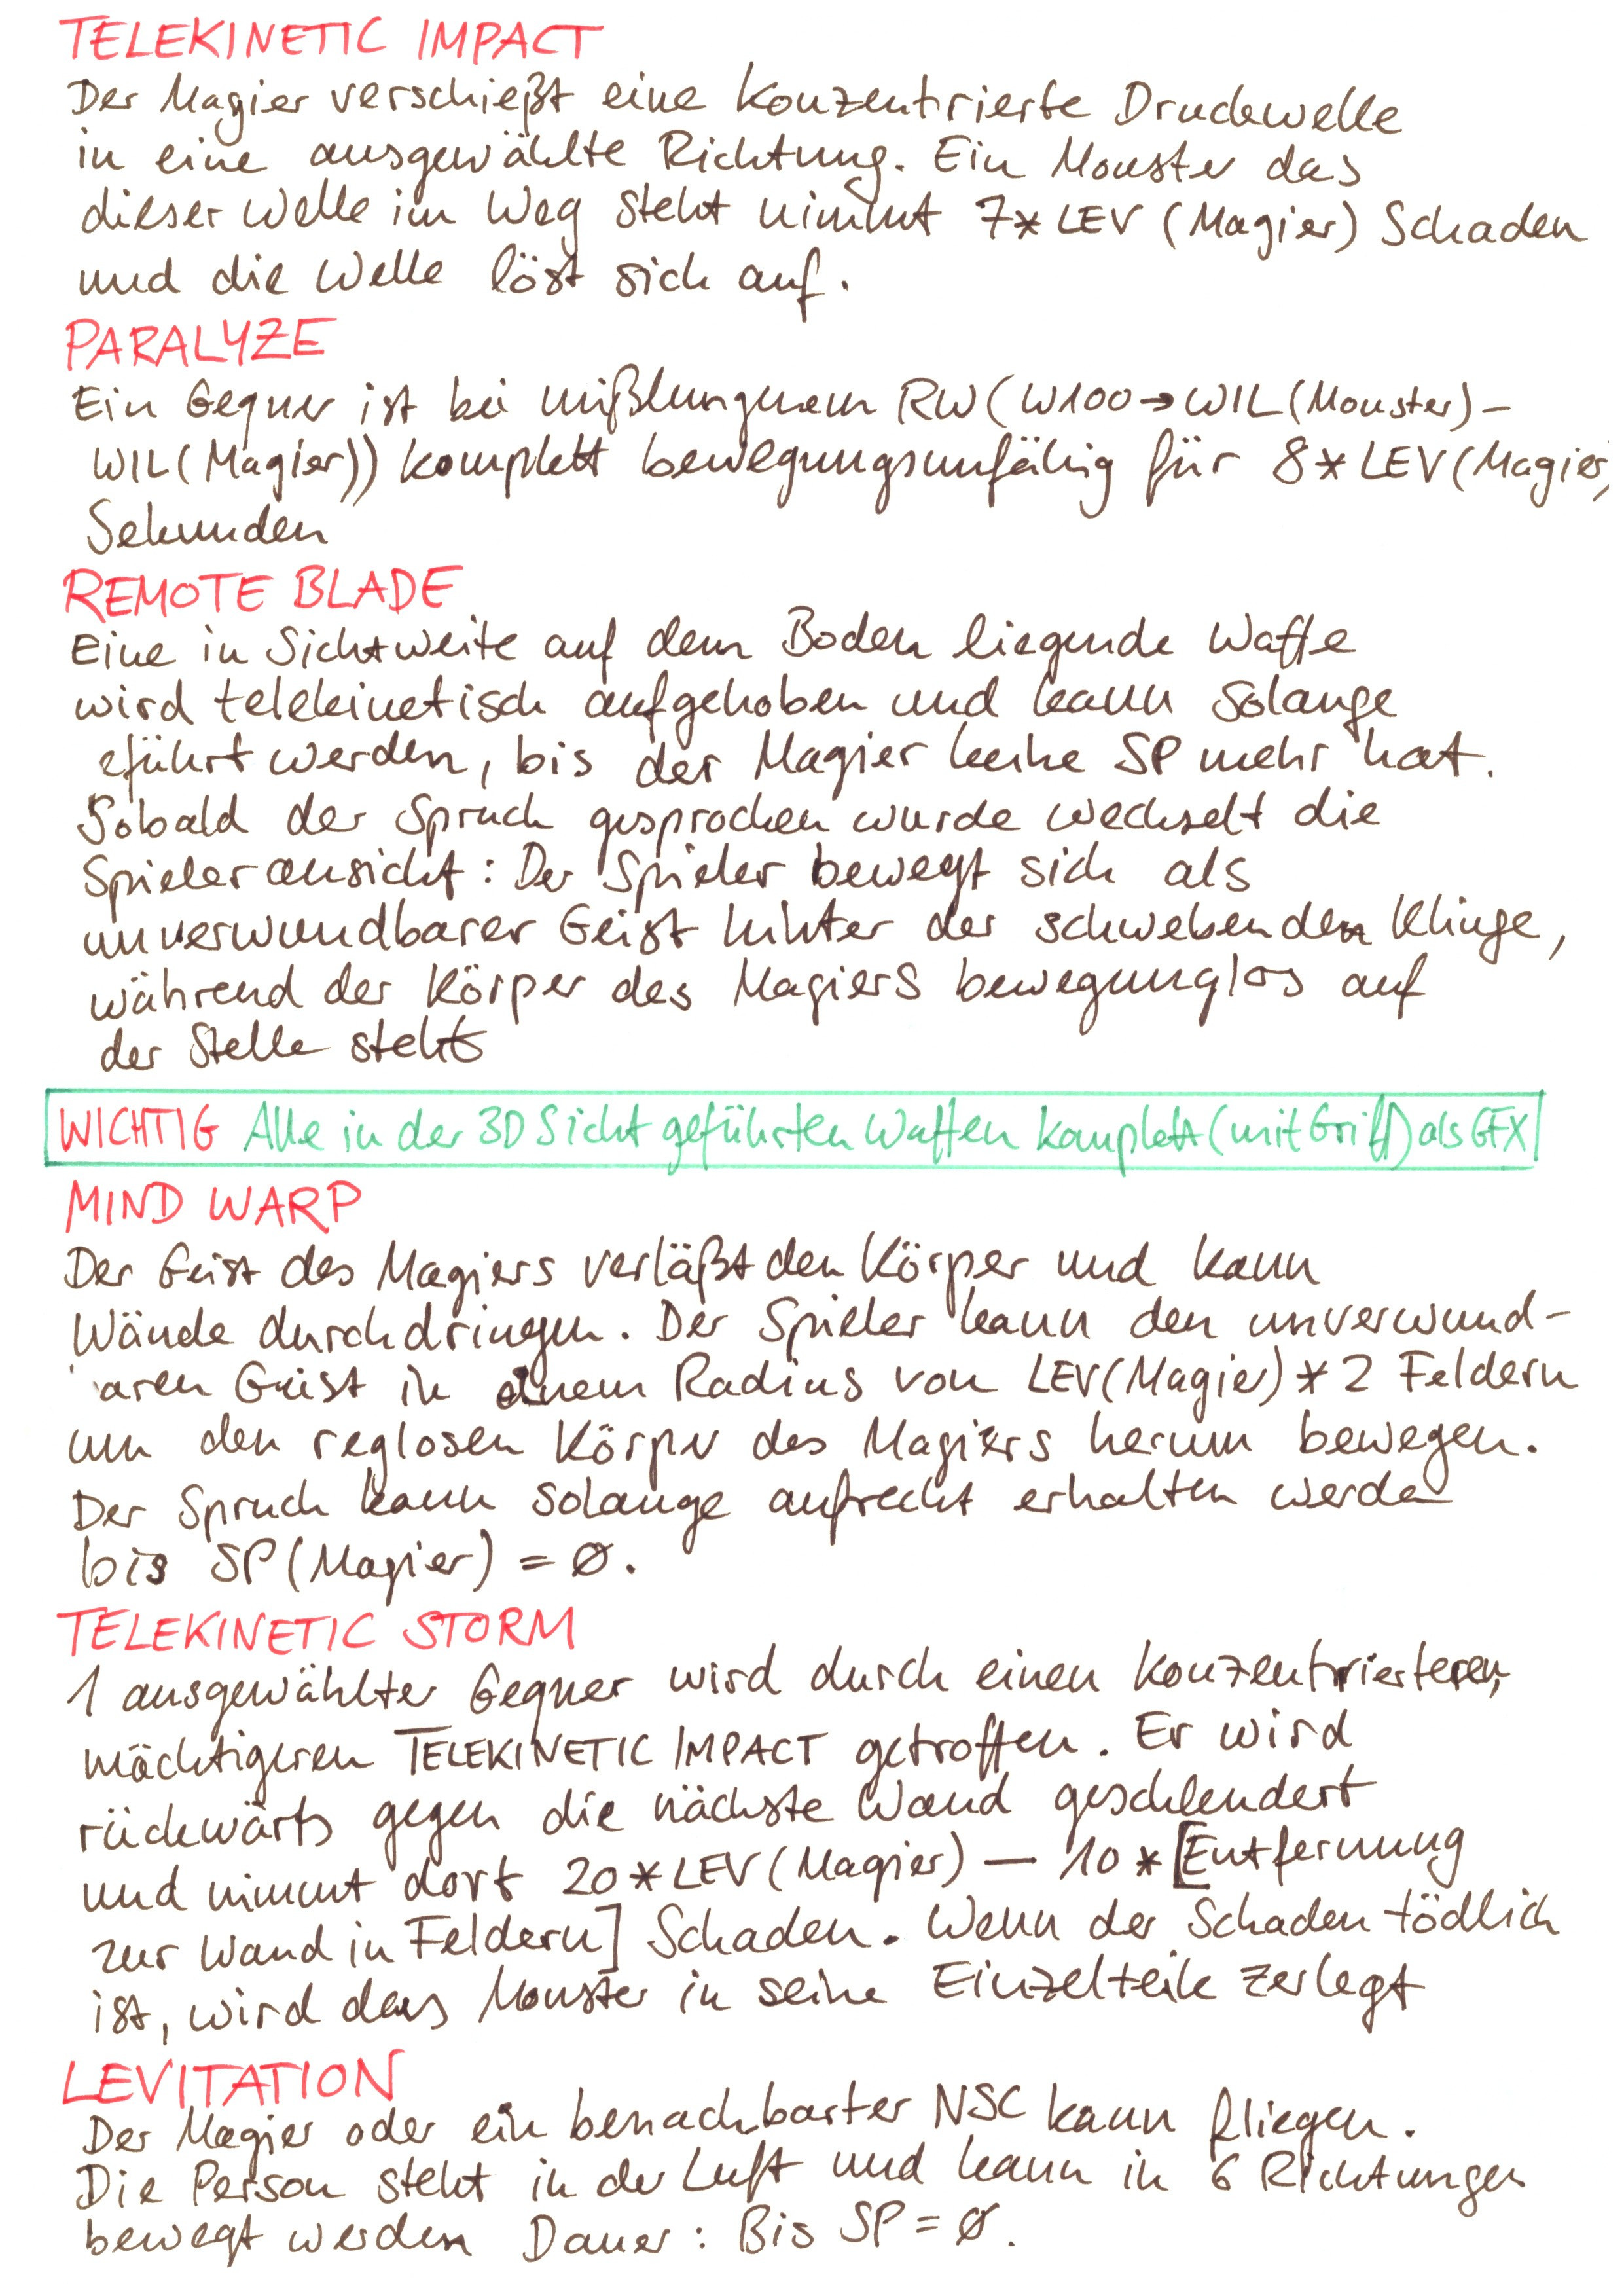 TELEKINETIC IMPACT
Der Magier verschießt eine konzentrierte Druckwelle
in eine ausgewählte Richtung. Ein Monster das
dieser Welle im Weg steht nimmt 7*LEV (Magier) Schaden
und die Welle löst sich auf.
PARALYZE
Ein Gegner ist bei mißlungnem RW (W100→WIL(Monster)-
WIL(Magier)) komplett bewegungsunfähig für 8*LEV(Magier)
Sekunden
REMOTE BLADE
Eine in Sichtweite auf dem Boden liegende Waffe
wird telekinetisch aufgehoben und kann solange
eführt werden, bis der Magier keine SP mehr hat.
Sobald der Spruch gesprochen wurde wechselt die
Spieleransicht: Der Spieler bewegt sich als
unverwundbarer Geist hinter der schwebenden Klinge,
während der Körper des Magiers bewegunglos auf
der Stelle steht
WICHTIG Alle in der 3D Sicht geführten Waffen komplett (mit Griff) als GFX
MIND WARP
Der Geist des Magiers verläßt den Körper und kann
Wände durchdringen. Der Spieler kann den unverwund-
aren Geist in einem Radius von LEV(Magier)*2 Feldern
um den reglosen Körper des Magiers herum bewegen.
Der Spruch kann solange aufrecht erhalten werde
bis SP(Magier) = Ø.
TELEKINETIC STORM
1 ausgewählter Gegner wird durch einen konzentrierteren,
mächtigeren TELEKINETIC IMPACT getroffen. Er wird
rückwärts gegen die nächste Wand geschleudert
und nimmt dort 20*LEV(Magier) - 10*[Entfernung
zur Wand in Feldern] Schaden. Wenn der Schaden tödlich
ist, wird das Monster in seine Einzelteile zerlegt
LEVITATION
Der Magier oder ein benachbarter NSC kann fliegen.
Die Person steht in der Luft und kann in 6 Richtungen
bewegt werden Dauer: Bis SP = Ø.